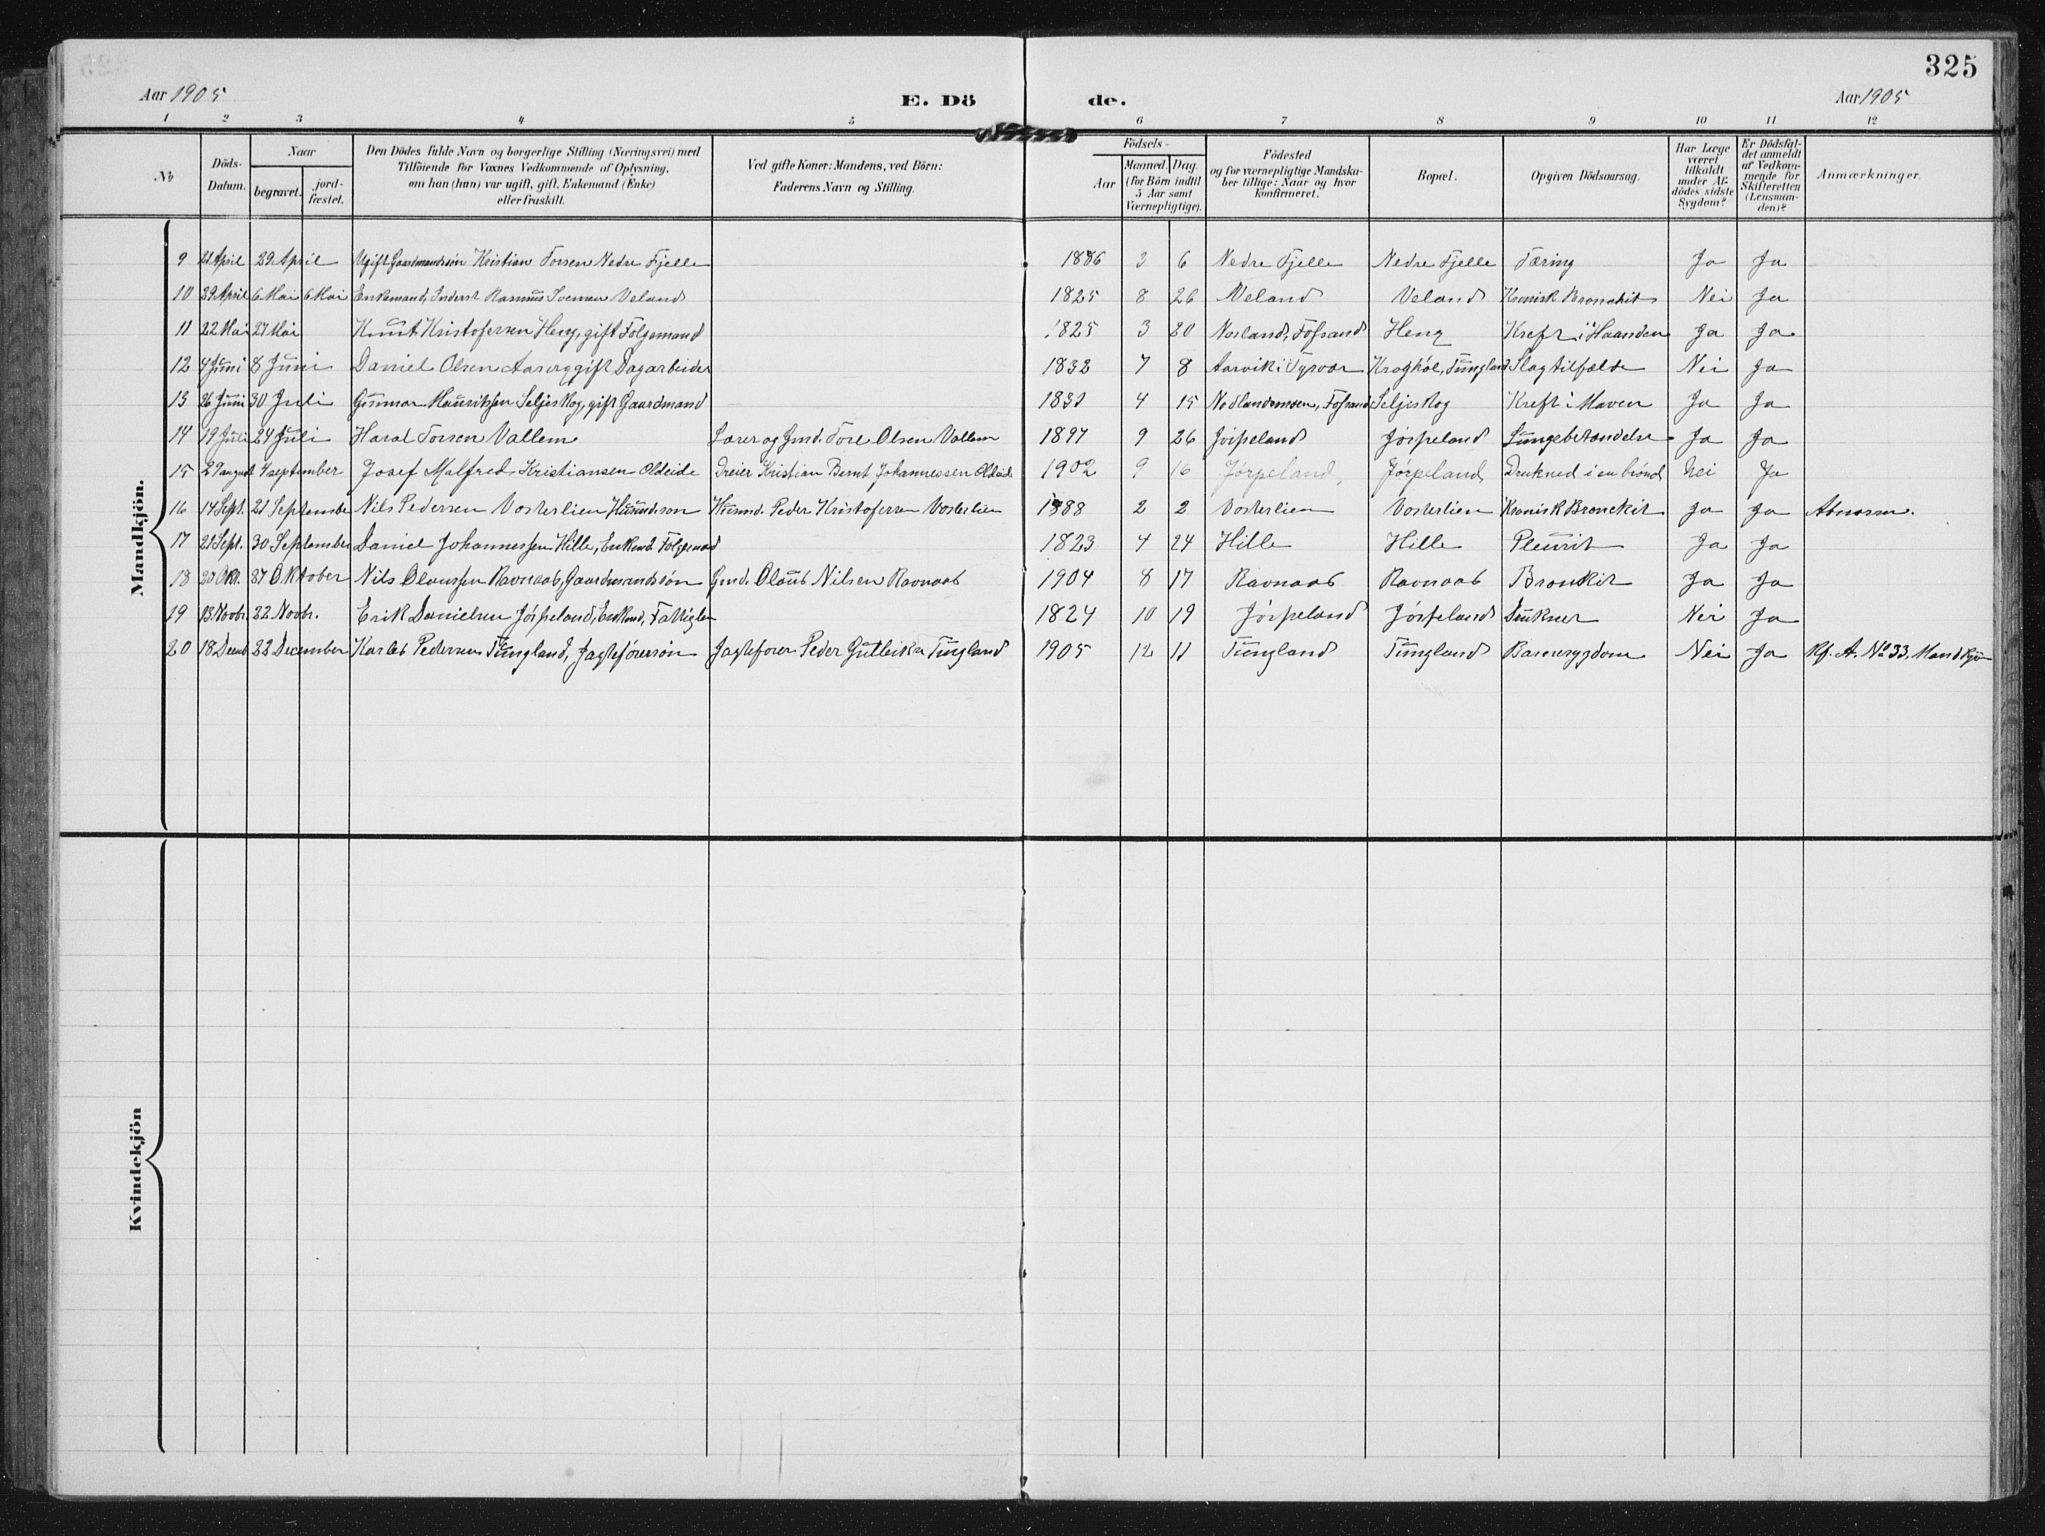 325
Aar 1905 E. Dö de. Aar 1905
1 2 3 4 5 6 7 8 9 10 11 12
No
Döds-Datum.
Naar
begravet.
jord-fæstet.
Den Dödes fulde Navn og borgerlige Stilling (Næringsvei) med
Tilföiende for Voxnes Vedkommende af Oplysning,
om han (hun) var ugift, gift, Enkemand (Enke)
eller fraskilt.
Ved gifte Koner: Mandens, ved Börn:
Faderens Navn og Stilling.
Födsels-
Aar
Maaned.
Dag.
(for Börn indtil
5 Aar samt
Værnepligtige).
Födested
og for værnepligtige Mandska-
ber tillige: Naar og hvor
konfirmeret.
Bopæl.
Opgiven Dödsaarsag.
Har Læge
været
tilkaldt
under Af-
dödes sidste
Sygdom?
Er Dödsfal-
det anmeldt
af Vedkom-
mende for
Skifteretten
(Lensman-
den)?
Anmærkninger.
Mandkjön.
9 21 April 29 April Ugift Gaardmandssön Kristian Torsen Nedre Fjelle 1886 3 6 Nedre Fjelle Nedre Fjelle Tæring Ja Ja
10 29 April 6 Mai 6 Mai Enkemand, Inderst Rasmus Svensen Veland 1825 8 26 Veland Veland Kronisk Bronchit Nei Ja
11 22 Mai 27 Mai Knut Kristofersen Heng, gift Folgemand 1825 3 20 Fofsand Heng Kreft i Haanden Ja Ja
12 4 Juni 8 Juni Daniel Olsen gift Dagarbeider 1832 7 8 Aarvik i Tysvær Tungland Slagtilfælde Nei Ja
13 26 Juni 30 Juli Gunnar Mauritsen Seljeskog, gift Gaardmand 4 15 Fofsand Seljeskog Kreft i Maven Ja Ja
14 19 Juli 24 Juli Haral Torsen Vallem Lærer og Gmd. Tore Olsen Vallem 1897 9 26 Jörpeland Jörpeland Lungebetændelse Ja Ja
15 August September Josef Malfred Kristiansen Oldeide Dreier Kristian Bernt Johannessen Oldeide 1902 9 16 Jørpeland, Jørpeland Drukned i en brönd Nei Ja
16 14 Sept. 21 September Nils Pedersen Vosterlien Husmdsson Husmd. Peder Kristofersen Vosterlien 1888 2 2 Vosterlien Vosterlien Kronisk Bronckit Ja Ja Abnorm.
17 21 Sept. 30 September Daniel Johannessen Hille, Enkemd. Folgemand 1823 4 24 Hille Hille Pleurit Ja Ja
18 20 Okt. 27 Oktober Nils Olaussen Ravnaas, Gaardmandssön Gmd. Olaus Nilsen Ravnaas 1904 8 17 Ravnaas Ravnaas Bronkit Ja Ja
19 13 Novbr. 22 Novbr. Erik Danielsen Jörpeland, Enkmd, Fattiglem 1824 10 19 Jörpeland Jörpeland Nei Ja
20 18 Decmb 22 December Pedersen Tungland, Jagteförersön Jagtefører Peder Tungland 1905 12 11 Tungland Tungland Barnesygdom Nei Ja Kf. A. No 33, Mandkjön
Kvindekjön